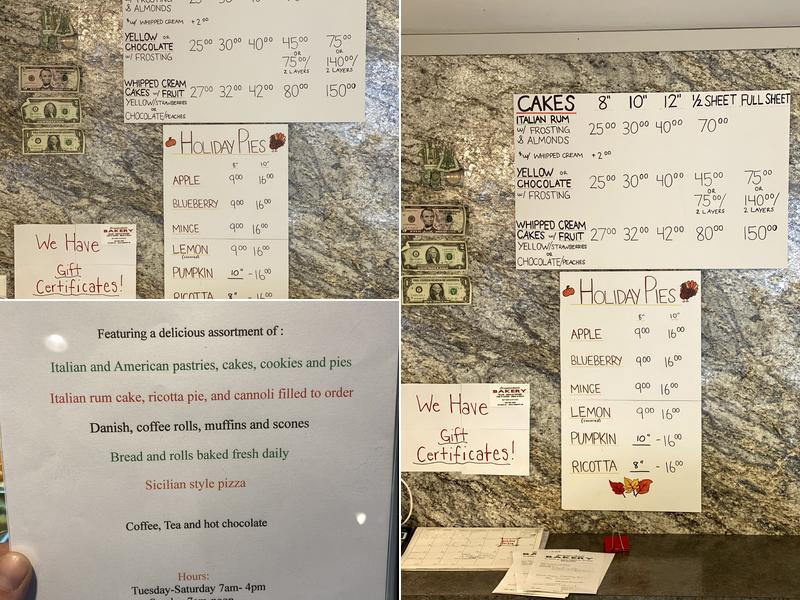 FROSTING
& ALMONDS
$ w/ WHIPPED CREAM +2.00
YELLOW OR
CHOCOLATE
w/ FROSTING
25.00 30.00 40.00 45.00 75.00
OR OR
75.00/ 140.00/
2 LAYERS 2 LAYERS
WHIPPED CREAM
CAKES w/ FRUIT 27.00 32.00 42.00 80.00 150.00
YELLOW/STRAWBERRIES
OR
CHOCOLATE/PEACHES
HOLIDAY PIES
8" 10"
APPLE 9.00 16.00
BLUEBERRY 9.00 16.00
MINCE 9.00 16.00
LEMON 9.00 16.00
PUMPKIN 10" - 16.00
RICOTTA 8" - 16.00
BAKERY
We Have
Gift
Certificates!
Featuring a delicious assortment of :
Italian and American pastries, cakes, cookies and pies
Italian rum cake, ricotta pie, and cannoli filled to order
Danish, coffee rolls, muffins and scones
Bread and rolls baked fresh daily
Sicilian style pizza
Coffee, Tea and hot chocolate
Hours:
Tuesday-Saturday 7am- 4pm
Sunday 7am-noon
CAKES 8" 10" 12" ½ SHEET FULL SHEET
ITALIAN RUM
w/ FROSTING 25.00 30.00 40.00 70.00
& ALMONDS
$ w/ WHIPPED CREAM +2.00
YELLOW OR
CHOCOLATE
w/ FROSTING
25.00 30.00 40.00 45.00 75.00
OR OR
75.00/ 140.00/
2 LAYERS 2 LAYERS
WHIPPED CREAM
CAKES w/ FRUIT 27.00 32.00 42.00 80.00 150.00
YELLOW/STRAWBERRIES
OR
CHOCOLATE/PEACHES
HOLIDAY PIES
8" 10"
APPLE 9.00 16.00
BLUEBERRY 9.00 16.00
MINCE 9.00 16.00
LEMON 9.00 16.00
PUMPKIN 10" - 16.00
RICOTTA 8" - 16.00
BAKERY
We Have
Gift
Certificates!
BAKERY